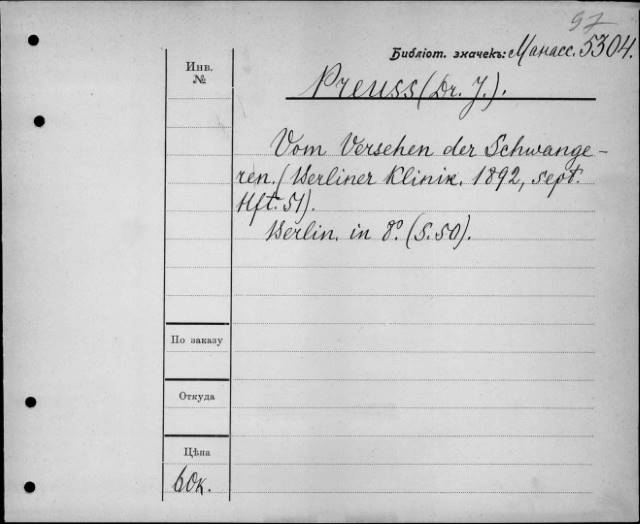 97
Библіот. значекъ: Манасс. 5304.
Инв.
№
Preuss (Dr. J.).
Vom Versehen der Schwange-
ren. (Berliner Klinik. 1892, sept.
Hft. 51).
Berlin. in 8º. (S. 50).
По заказу
Откуда
Цѣна
60к.